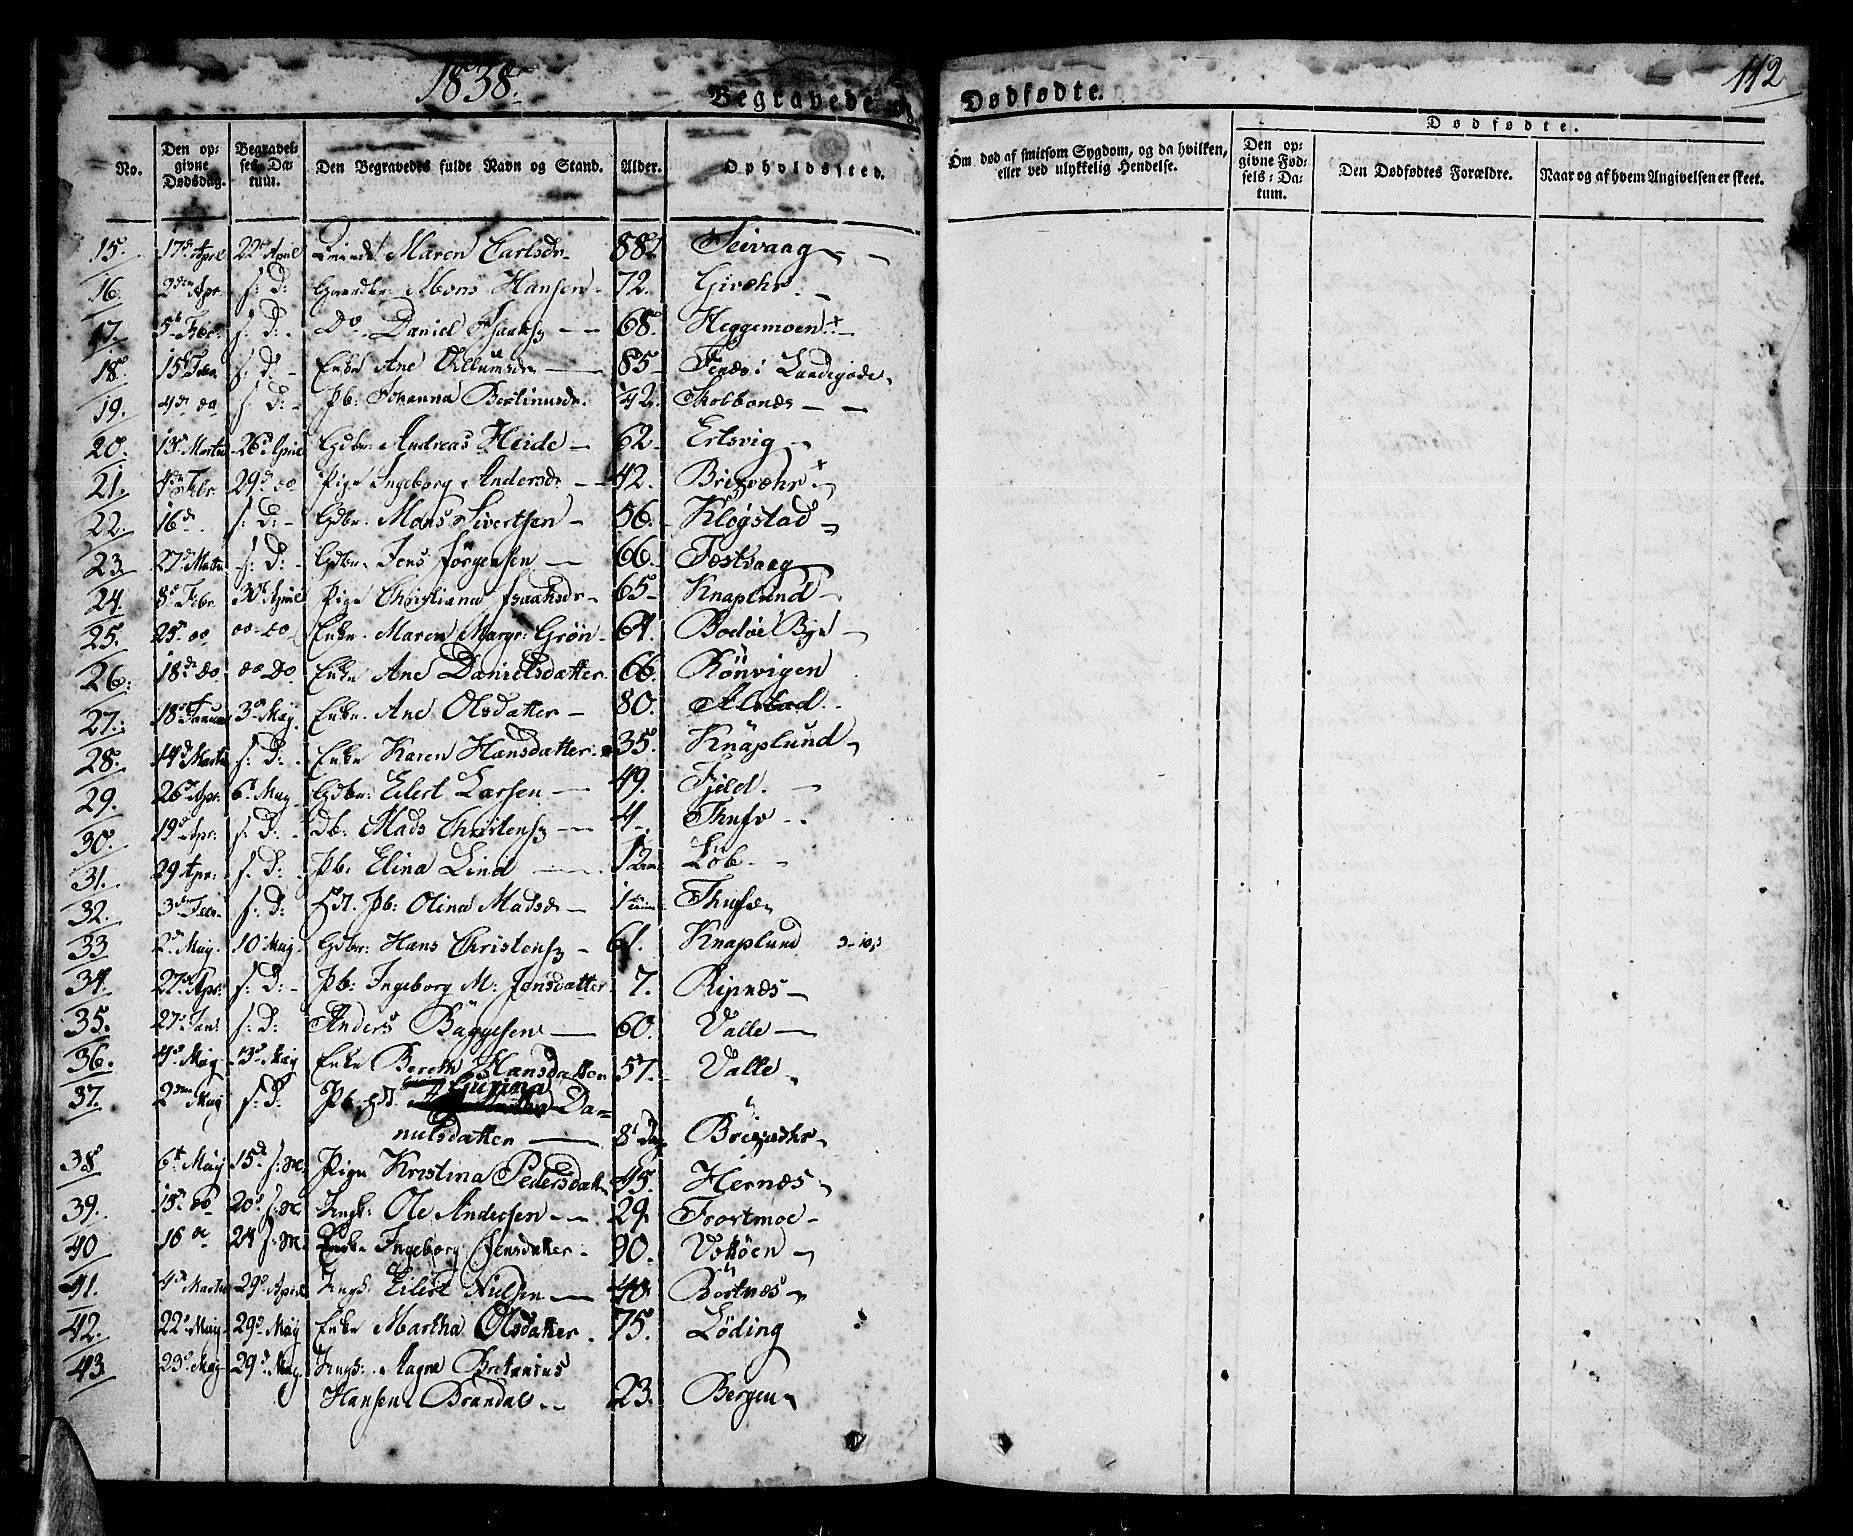 1838.
Begravede og
No. Den opgivne Dødsdag. Begravelses-Datum. Den Begravedes fulde Navn og Stand. Alder. Opholdssted.
15. 17de April 22de April Maren Carlsdr 88 Seivaag
16. 2den Apr. s: D: Gaardbr: Mons Hansen 72. Givæhr.
17. 5t Febr s: D: Do Daniel Isaaks 68. Heggemoen
18. 15de s: D: Enke Ane Villumsdr 85 Fenæs i Landegode
19. 4de do s: D: Pb: Johanna Bertinusdr. 42. Skolbones
20. 13de Martii 26de April Gdbr: Andreas Heide 62 Ertsvig
21. 4de Febr 29de do Pige Ingeborg Andersdr 42. Brixvæhr.
22. 16de s: D: Gdbr: Mons Sivertsen 56. Klogstad
23. 27de Martii s: D: Gdbr. Jens Jørgensen 66. Fæstvaag
24. 8de Febr 30te April Pige Christiana Isaaksdr 65 Knaplund
25. 25de do do do Enke. Maren Margr: Grøn 64. Bodøe Bye
26. 18de do do Do Enke Ane Danielsdatter 66. Rönvigen
27. 18de Januar 3de May. Enke. Ane Olsdatter 80. Alstad.
28. 14de Martii s: D: Enke Karen Hansdatter 35. Knaplund
29. 26de Apr: 6te May Gdbr: Eilert Larsen 49. Fjeld.
30. 19de Apr: s: D: Db: Mads Christens 4 Thufv
31. 29 Apr: s: D: Pb: Elina Lind 12 Löb
32. 3de Febr. s: D: Pb: Olina Madsd 1 Thufv
33 2de May. 10de May. Gdbr: Hans Christens 61. Knaplund
34. 27de Apr: s: D: Pb: Ingeborg M: Jonsdatter 7. Ripnæs
35. 27de Jan: s: D: Anders Baggesen 60. Valle
36. 4de May 13de May Enke Bereth Hansdatter 57. Valle
37. 2den May s: D: Pb. Gurina Da=
nielsdatter 8 Dage Brixvæhr
38 6te May 15de s: M. Pige Kristina Pedersdatt 45. Hernæs
39. 15de do 20de s: M Ungk: Ole Andersen 29. Frostmoe
40 16 do 24 s: M. Enke Ingeborg Jensdatter 90. Voköen
41. 4de Martii 29de April Ungk: Eilert Nielsen 40. Börtnæs
42. 22de May 29de May Enke Martha Olsdatter 75. Löding
43 23de May 29de May. Ungk: Aagne Bretanius
Hansen Brandal 23. Bergen
Dødfødte. 112
Om død af smitsom Sygdom, og da hvilken, eller ved ulykkelig Hendelse.
Dødfødte.
Den opgivne Fødsels-Datum. Den Dødfødtes Forældre. Naar og af hvem Angivelsen er skeet.